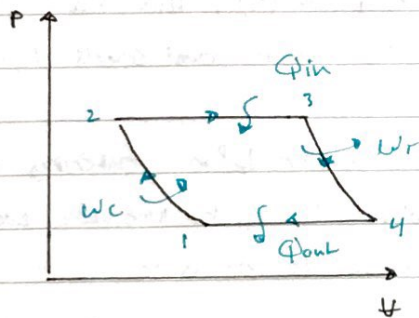 P
Qin
2
3
WT
WC
1
4
Qout
V